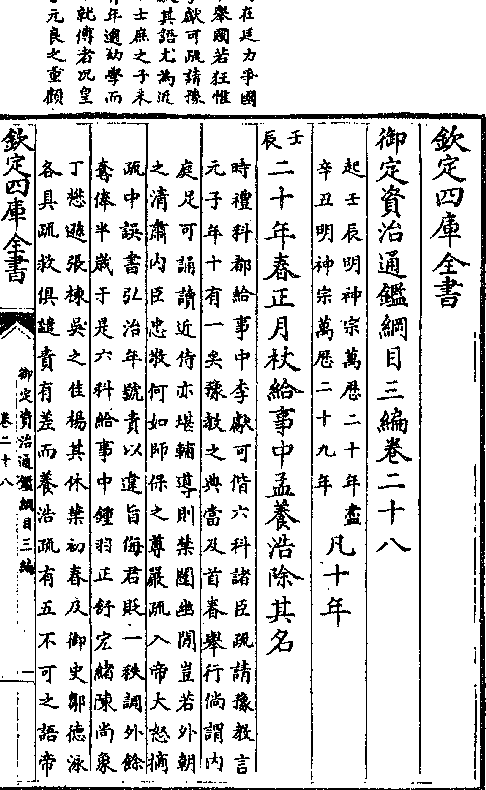 在廷力爭國
舉國若狂惟
獻可疏請豫
其語尤為近
士庶之子未
年適幼學而
就傅者况皇
元良之重顧
欽定四庫全書
御定資治通鑑綱目三編卷二十八
起壬辰明神宗萬歷二十年盡
辛丑明神宗萬歷二十九年
凡十年
壬辰
二十年春正月杖給事中孟養浩除其名
時禮科都給事中李獻可偕六科諸臣疏請豫教言
元子年十有一矣豫教之典當及首春舉行倘謂内
庭足可誦讀近侍亦堪輔導則禁闥幽閒豈若外朝
之清肅内臣忠敬何如師保之尊嚴疏入帝大怒摘
疏中誤書弘治年號責以違旨侮君貶一秩調外餘
奪俸半歲于是六科給事中鍾羽正舒宏緒陳尚象
丁懋遜張棟吳之佳楊其休葉初春及御史鄒德泳
各具疏救俱譴責有差而養浩疏有五不可之語帝
欽定四庫全書
御定資治通鑑綱目三編
卷二十八
一